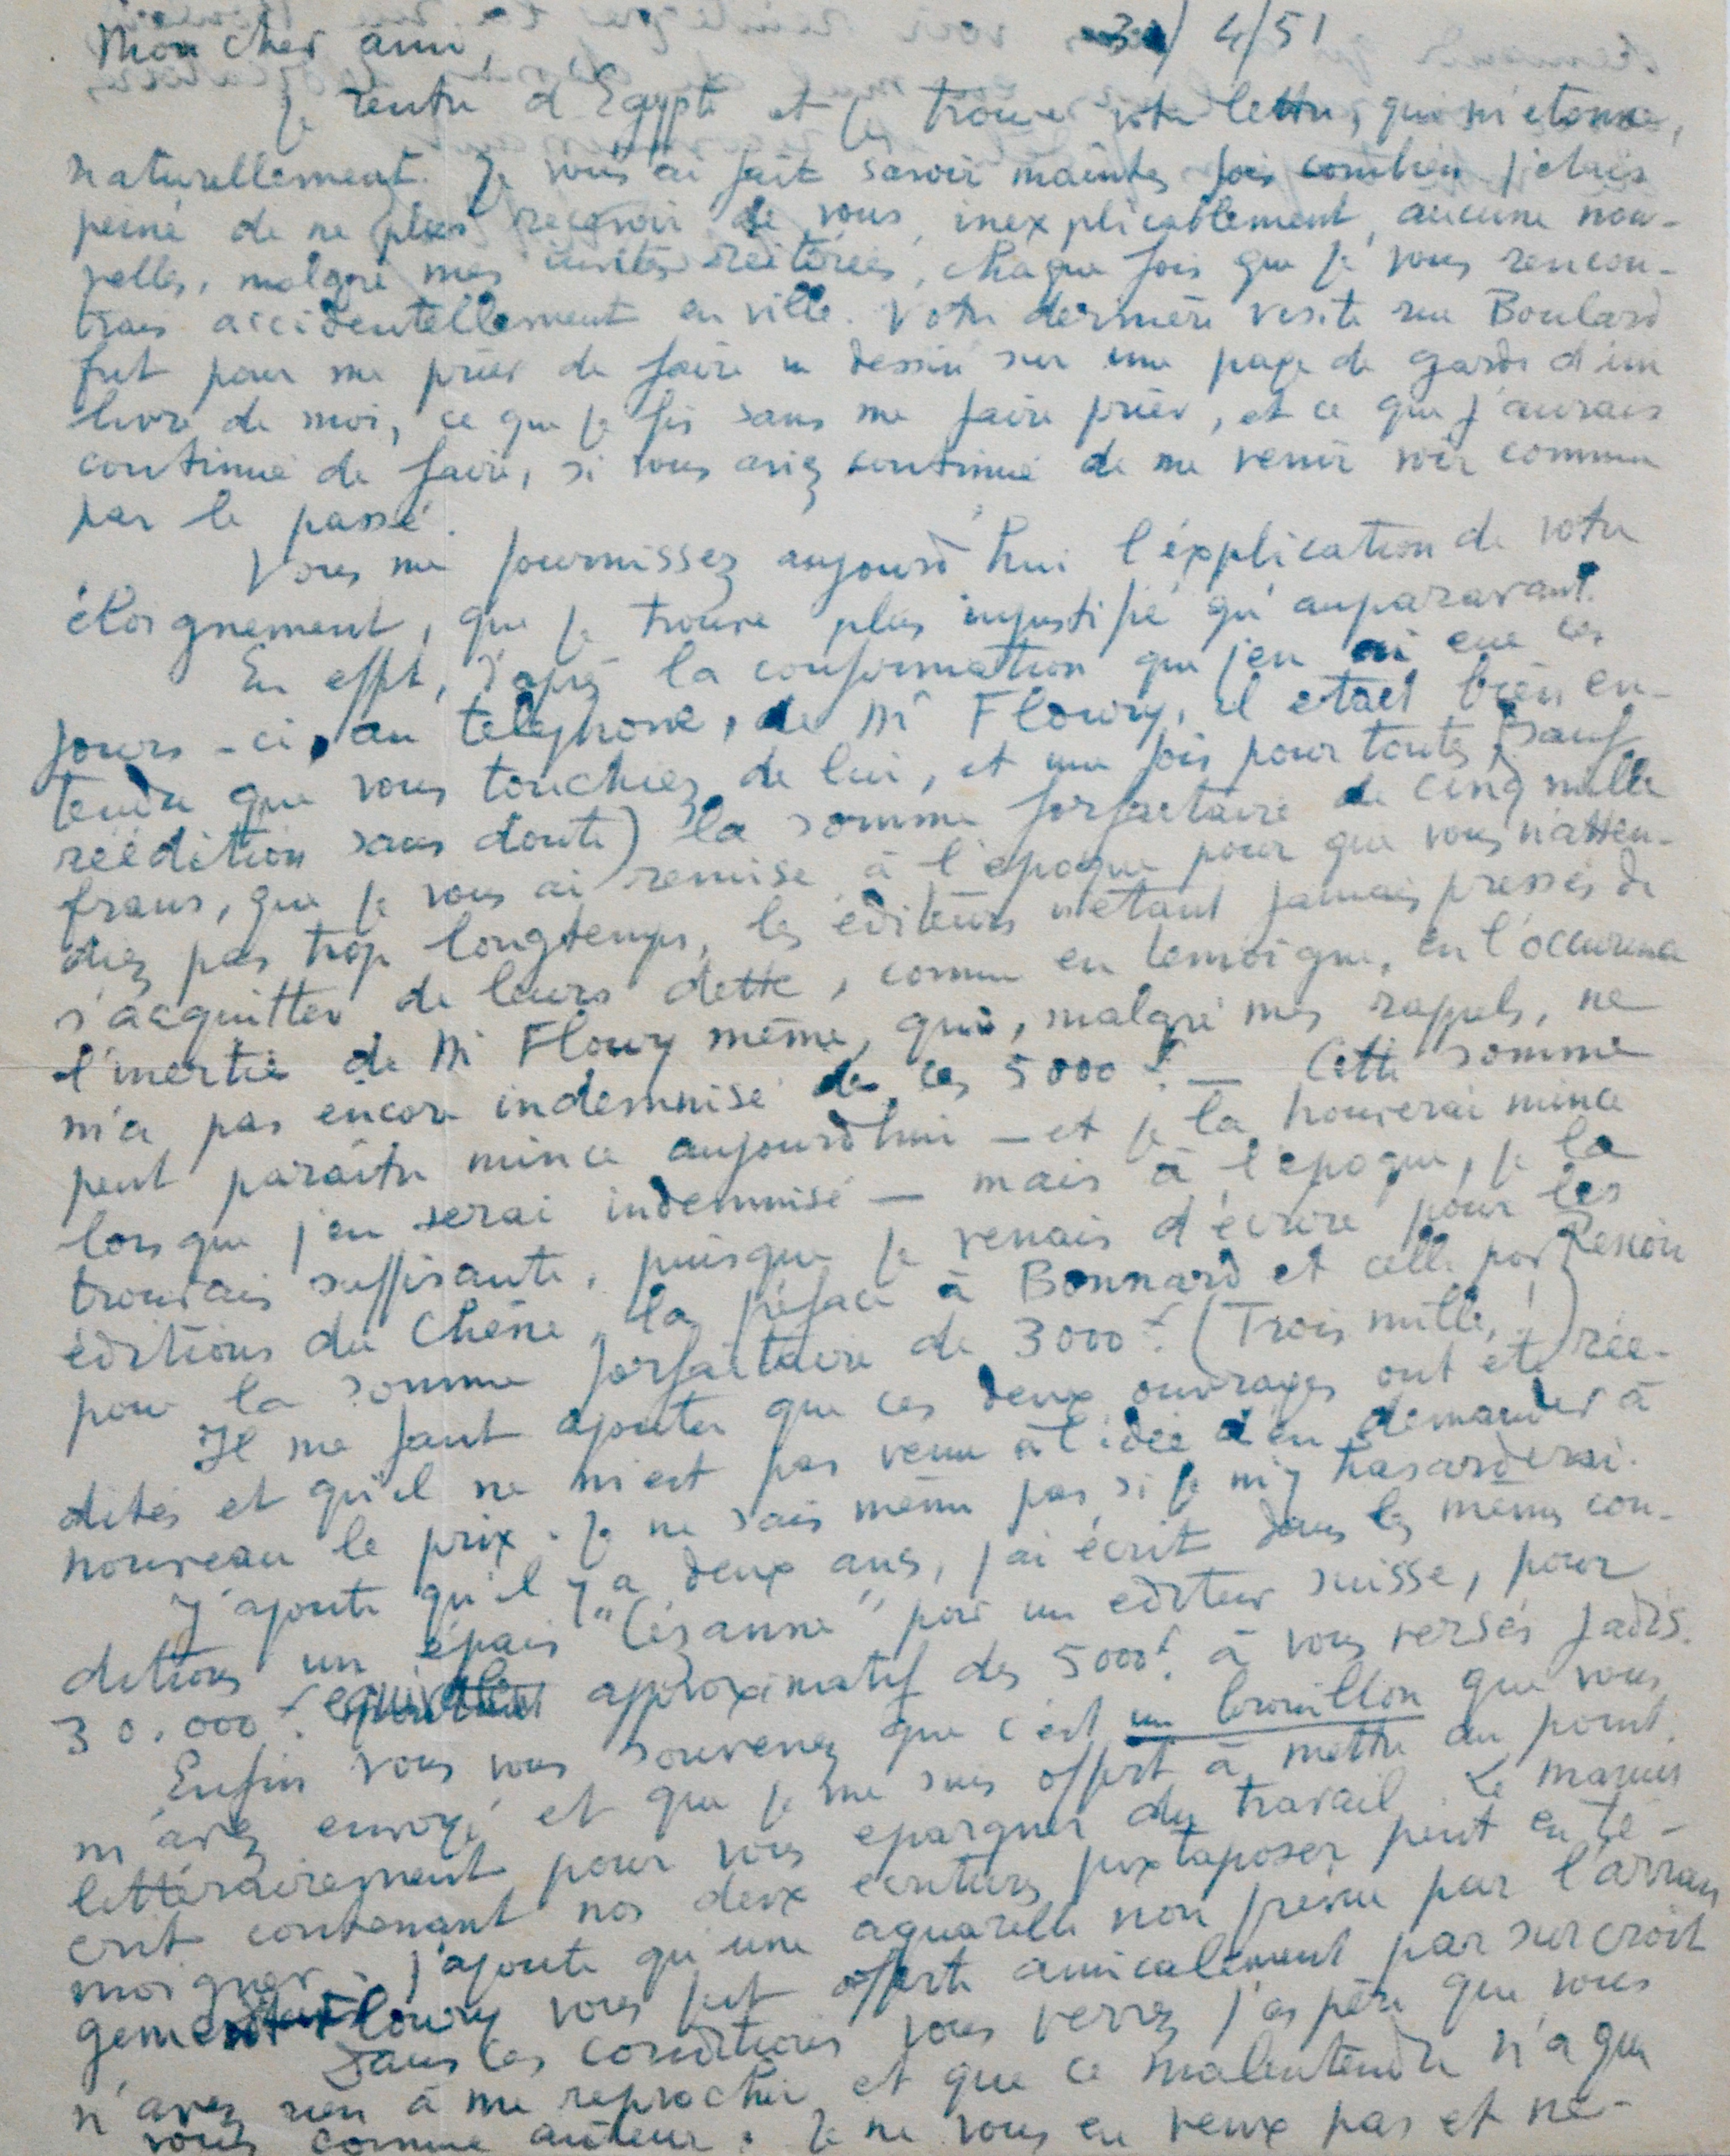 Mon cher ami, 30/4/51
Je rentre d'Egypte et je trouve votre lettre, qui m'étonne,
naturellement. Je vous ai fait savoir maintes fois combien j'étais
peiné de ne plus recevoir de vous, inexplicablement, aucune nou-
velles, malgré mes invites réitérées, chaque fois que je vous rencon-
trais accidentellement en ville. Votre dernière visite rue Boulard
fut pour me prier de faire un dessin sur une page de garde d'un
livre de moi, ce que je fis sans me faire prier, et ce que j'aurais
continué de faire, si vous aviez continué de me venir voir comme
par le passé.
Vous me fournissez aujourd'hui l'explication de votre
éloignement, que je trouve plus injustifié qu'auparavant.
En effet, d'après la confirmation que j'en ai eue ces
jours-ci, au téléphone, de Mr Floury, il était bien en-
tendu que vous touchiez de lui, et une fois pour toutes, (sauf
réédition sans doute) la somme forfaitaire de cinq mille
francs, que je vous ai remise à l'époque pour que vous n'atten-
diez pas trop longtemps, les éditeurs n'étant jamais pressés de
s'acquitter de leurs dette, comme en témoigne, en l'occurence
l'inertie de Mr Floury même, qui, malgré mes rappels, ne
m'a pas encore indemnisé de ces 5000 f. — Cette somme
peut paraître mince aujourd'hui — et je la trouverai mince
lorsque j'en serai indemnisé — mais à l'époque, je la
trouvais suffisante, puisque je venais d'écrire pour les
éditions du Chêne, la préface à Bonnard et celle pour Renoir
pour la somme forfaitaire de 3000 f. (Trois mille, !)
Il me faut ajouter que ces deux ouvrages ont été réé-
dités et qu'il ne m'est pas venu à l'idée d'en demander à
nouveau le prix. Je ne sais même pas si je m'y hasarderai.
J'ajoute qu'il y a deux ans, j'ai écrit dans les mêmes con-
ditions un épais "Cézanne" pour un editeur suisse, pour
30.000 f. équivalent approximatif des 5000 f. à vous versés jadis.
Enfin vous vous souvenez que c'est un brouillon que vous
m'avez envoyé et que je me suis offert à mettre au point
littérairement pour vous épargner du travail. Le manus
crit contenant nos deux écritures juxtaposer peut en té-
moigner. J'ajoute qu'une aquarelle non prévue par l'arran
gement Floury vous fut offerte amicalement par surcroit
Dans ces conditions vous verrez j'espère que vous
n'avez rien à me reprocher et que ce malentendu n'a que
vous comme auteur. Je ne vous en veux pas et ne-